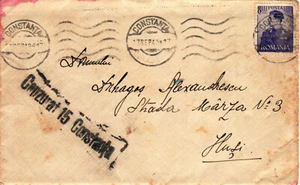 CONSTANȚA
CONSTANȚA
POSTA
ROMANIA
Domnului
Drhagoș Alexandrescu
Strada Marza Nº 3
Huși
Cenzurat 15 Constanța